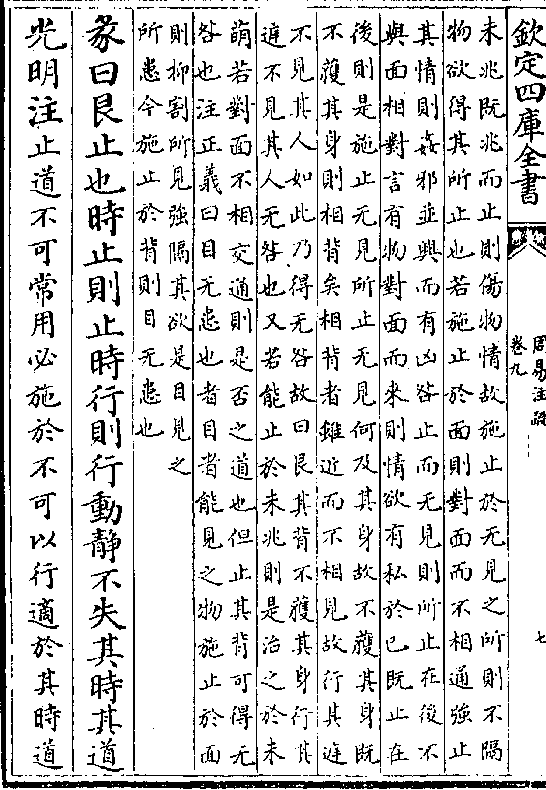 欽定四庫全書
周易注疏
卷九
七
未兆既兆而止則傷物情故施止於无見之所則不隔
物欲得其所止也若施止於面則對面而不相通強止
其情則姦邪並興而有凶咎止而无見則所止在後不
與面相對言有物對面而來則情欲有私於己既止在
後則是施止无見所止无見何及其身故不獲其身既
不獲其身則相背矣相背者雖近而不相見故行其庭
不見其人如此乃得无咎故曰艮其背不獲其身行其
庭不見其人无咎也又若能止於未兆則是治之於未
萌若對面不相交通則是否之道也但止其背可得无
咎也注正義曰目无患也者目者能見之物施止於面
則抑割所見強隔其欲是目見之
所患今施止於背則目无患也
彖曰艮止也時止則止時行則行動靜不失其時其道
光明注止道不可常用必施於不可以行適於其時道